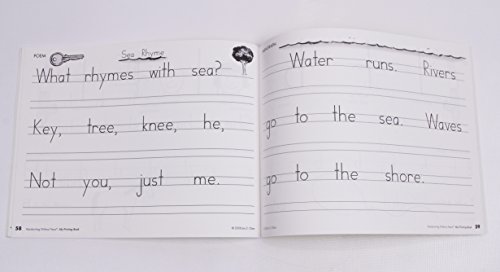 POEM
Sea Rhyme
What rhymes with sea?
Key, tree, knee, he,
Not you, just me.
58 Handwriting Without Tears® My Printing Book
Water runs. Rivers
go to the sea. Waves
go to the shore.
Handwriting Without Tears® My Printing Book 59